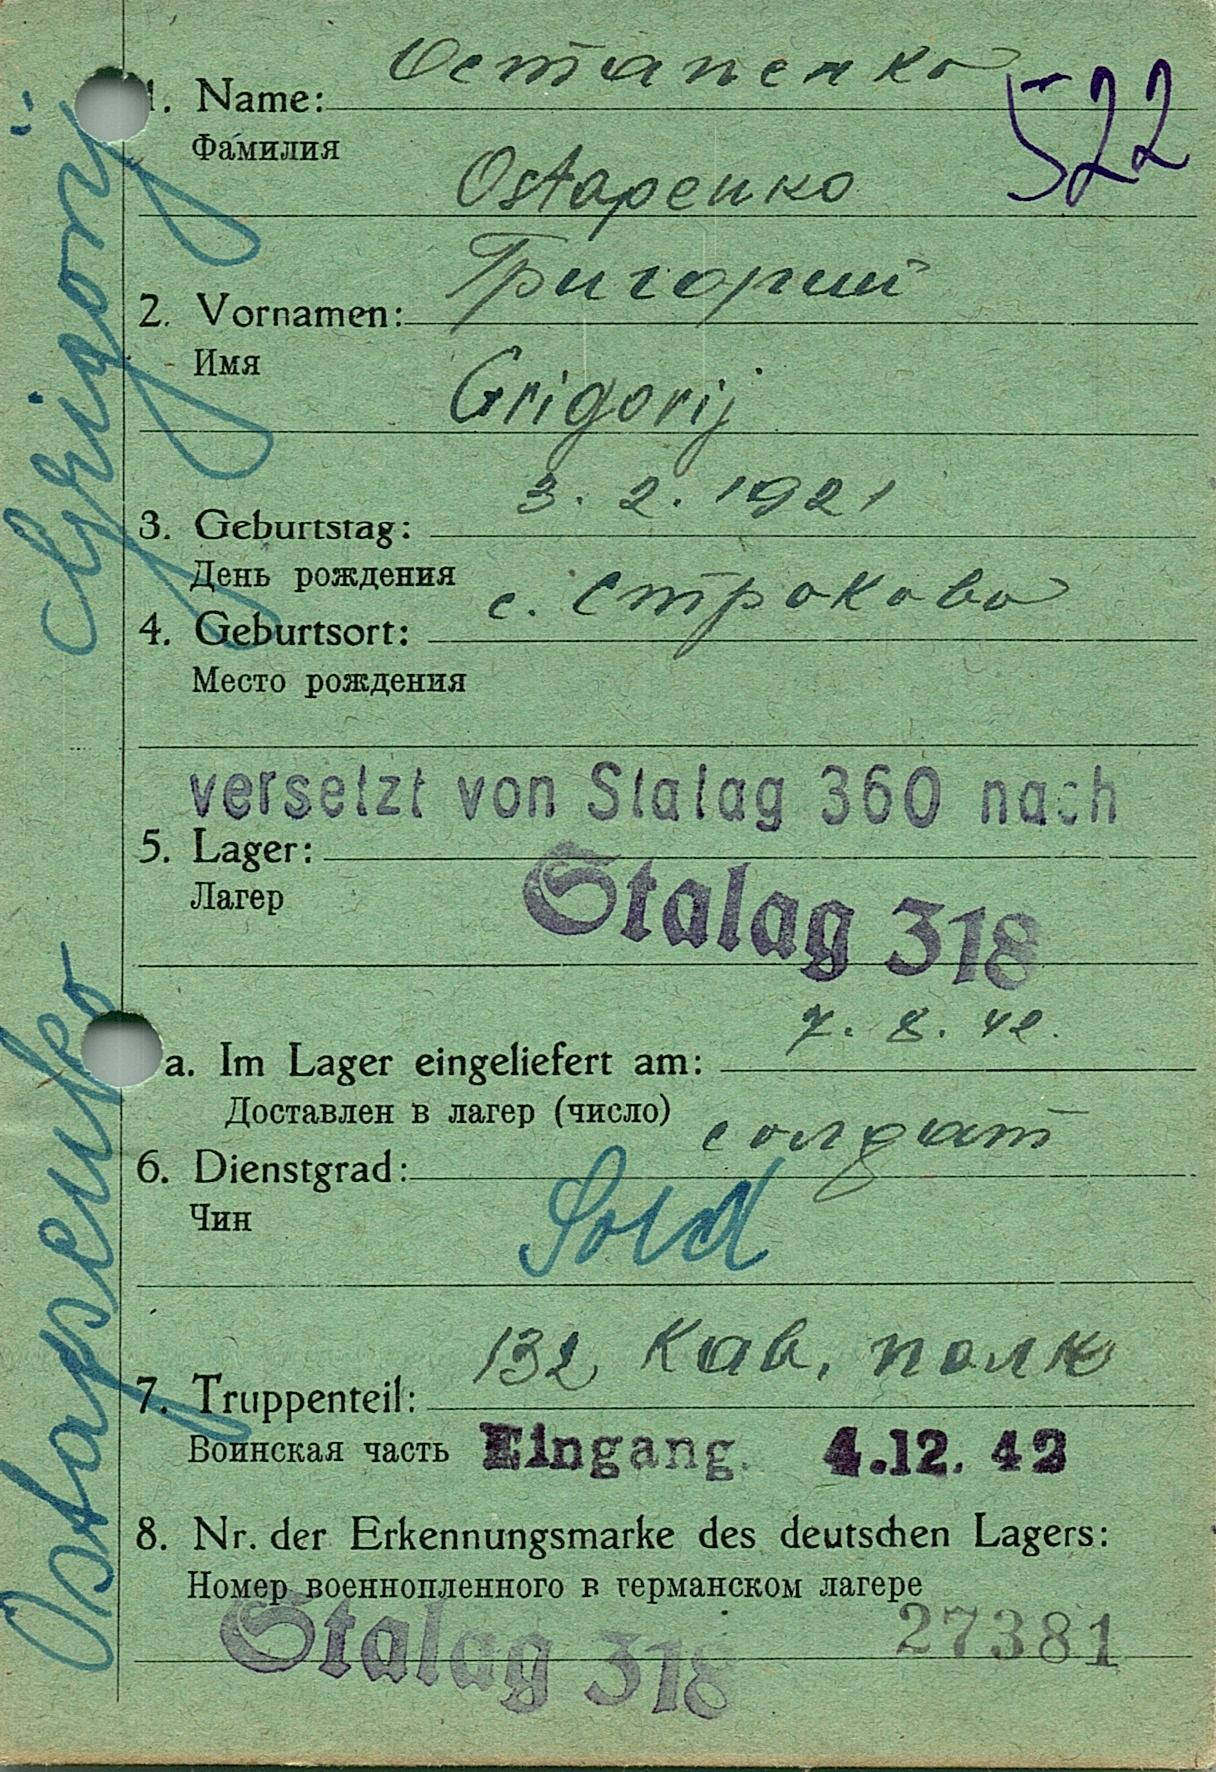 Остапенко
1. Name:
522
Фамилия
Ostapenко
Григорий
2. Vornamen:
Имя
Grigorij
3. 2. 1921
3. Geburtstag:
День рождения
с. Строково
4. Geburtsort:
Место рождения
versetzt von Stalag 360 nach
5. Lager:
Лагер
Stalag 318
7. 8. 42.
a. Im Lager eingeliefert am:
Доставлен в лагер (число)
солдат
6. Dienstgrad:
Чин
Sold
132 кав. полк
7. Truppenteil:
Воинская часть
Eingang. 4.12. 42
8. Nr. der Erkennungsmarke des deutschen Lagers:
Номер военнопленного в германском лагере
27381
Stalag 318
Ostapenko Grigorij